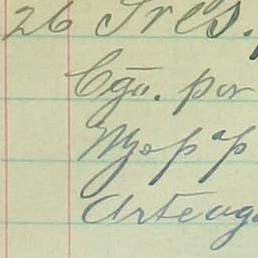 26 Sres.
Cga. por
Mzo pª p
Arteaga